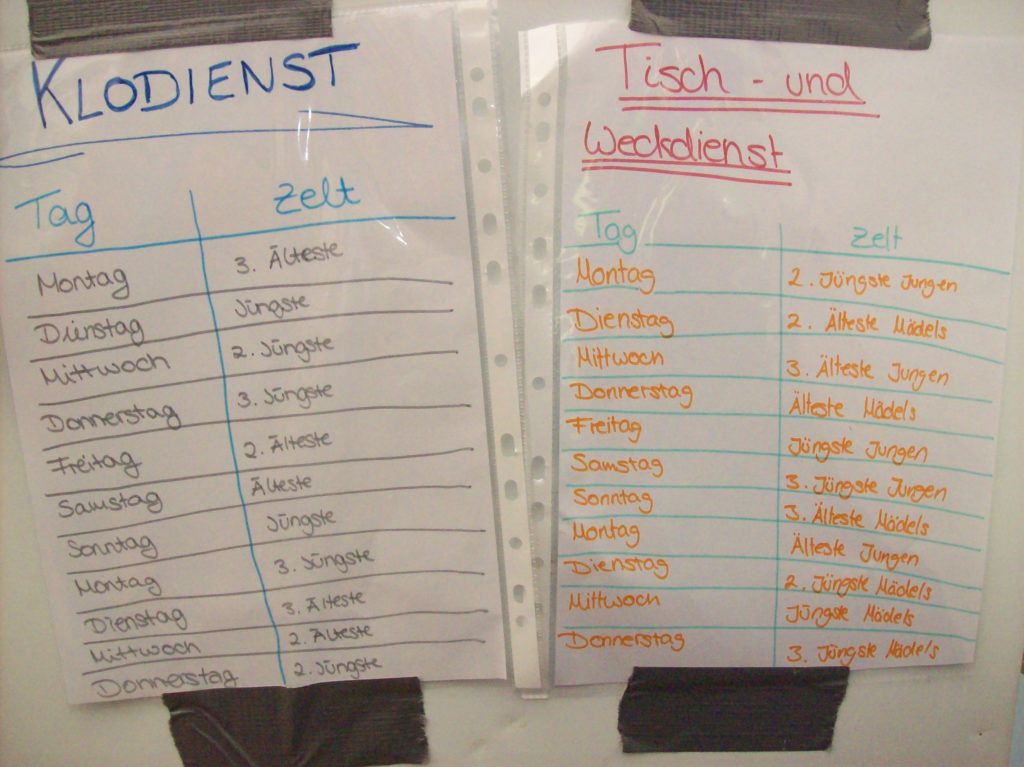 KLODIENST
Tag Zelt
Montag 3. Älteste
Dienstag Jüngste
Mittwoch 2. Jüngste
Donnerstag 3. Jüngste
Freitag 2. Älteste
Samstag Älteste
Sonntag Jüngste
Montag 3. Jüngste
Dienstag 3. Älteste
Mittwoch 2. Älteste
Donnerstag 2. Jüngste
Tisch - und
Weckdienst
Tag Zelt
Montag 2. Jüngste Jungen
Dienstag 2. Älteste Mädels
Mittwoch 3. Älteste Jungen
Donnerstag Älteste Mädels
Freitag Jüngste Jungen
Samstag 3. Jüngste Jungen
Sonntag 3. Älteste Mädels
Montag Älteste Jungen
Dienstag 2. Jüngste Mädels
Mittwoch Jüngste Mädels
Donnerstag 3. Jüngste Mädels